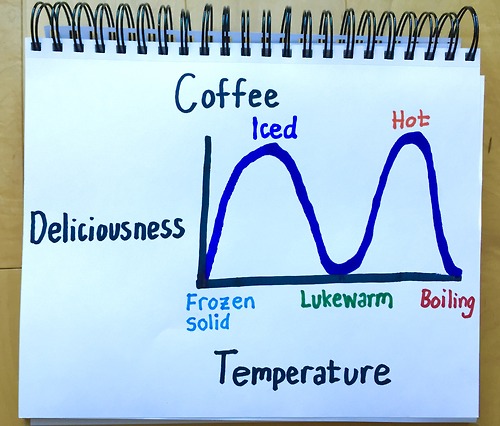 Coffee
Iced
Hot
Deliciousness
Frozen
solid
Lukewarm
Boiling
Temperature